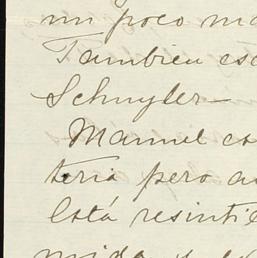 un poco ma
Tambien esc
Schuyler—
Manuel es
teria pero a
Está resintie